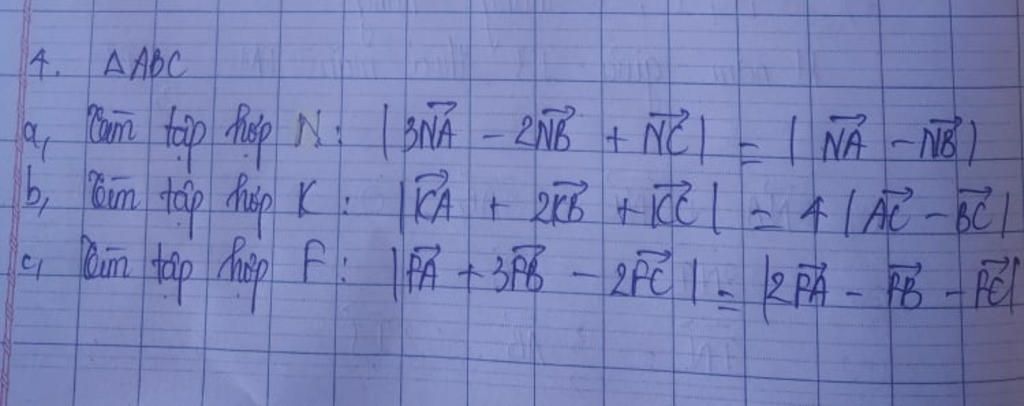 4. △ABC
a, Tìm tập hợp N: |3\overrightarrow{NA} - 2\overrightarrow{NB} + \overrightarrow{NC}| = |\overrightarrow{NA} - \overrightarrow{NB}|
b, Tìm tập hợp K: |\overrightarrow{KA} + 2\overrightarrow{KB} + \overrightarrow{KC}| = 4|\overrightarrow{AC} - \overrightarrow{BC}|
c, Tìm tập hợp F: |\overrightarrow{FA} + 3\overrightarrow{FB} - 2\overrightarrow{FC}| = |2\overrightarrow{FA} - \overrightarrow{FB} - \overrightarrow{FC}|